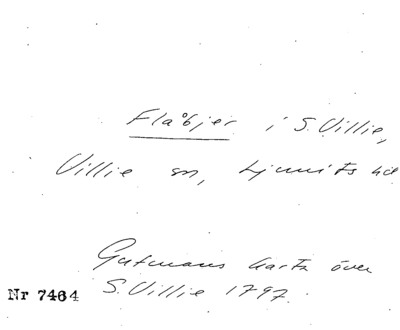 Flåbjer i S. Villie,
Villie sn, Ljunits hd
Gutmans karta över
S. Villie 1797.
Nr 7464